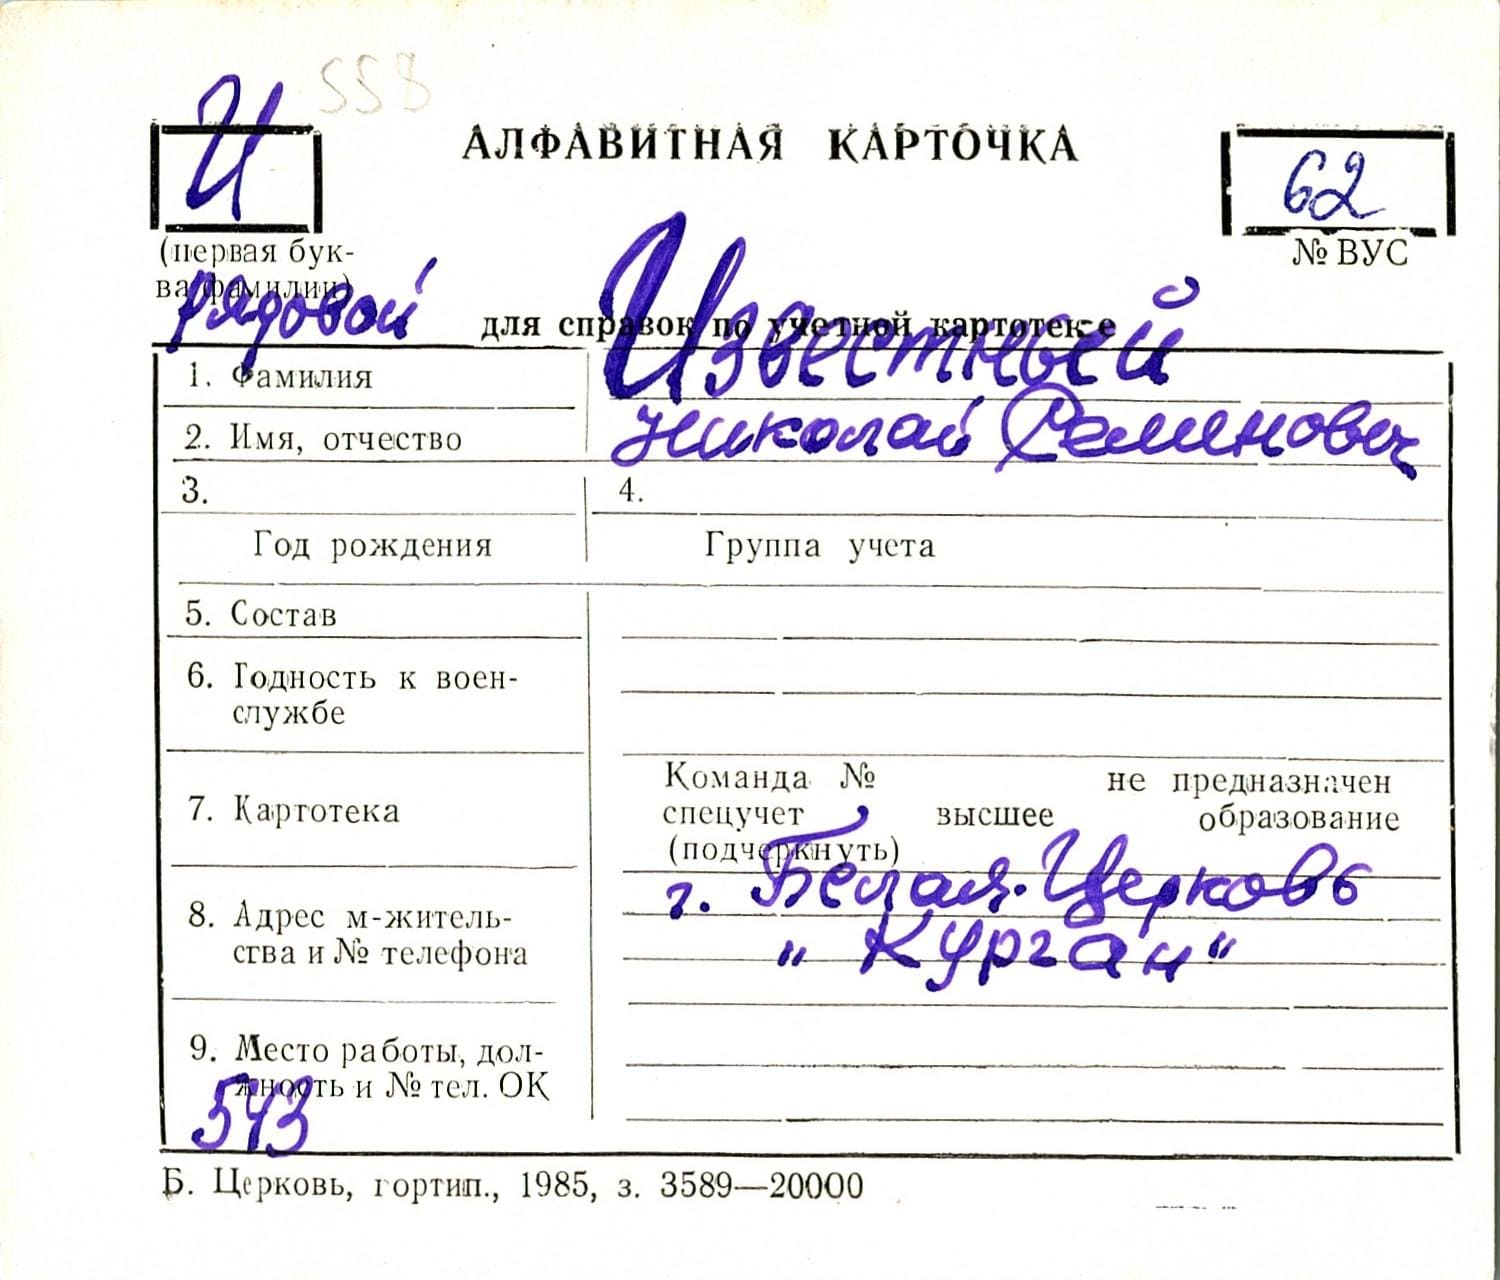 558
И
АЛФАВИТНАЯ КАРТОЧКА
62
(первая бук-
ва фамилии)
№ ВУС
рядовой
для справок по учетной картотеке
1. Фамилия Известный
2. Имя, отчество Николай Семенович
3. 4.
Год рождения Группа учета
5. Состав
6. Годность к воен-
службе
7. Картотека
Команда № не предназначен
спецучет высшее образование
(подчеркнуть)
8. Адрес м-житель-
ства и № телефона
г. Белая-Церковь
„Курган“
9. Место работы, дол-
жность и № тел. ОК
543
Б. Церковь, гортип., 1985, з. 3589—20000